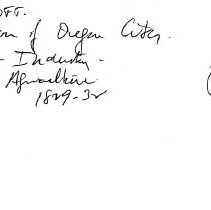 of Oregon City.
- Industry -
Agriculture
1829-32